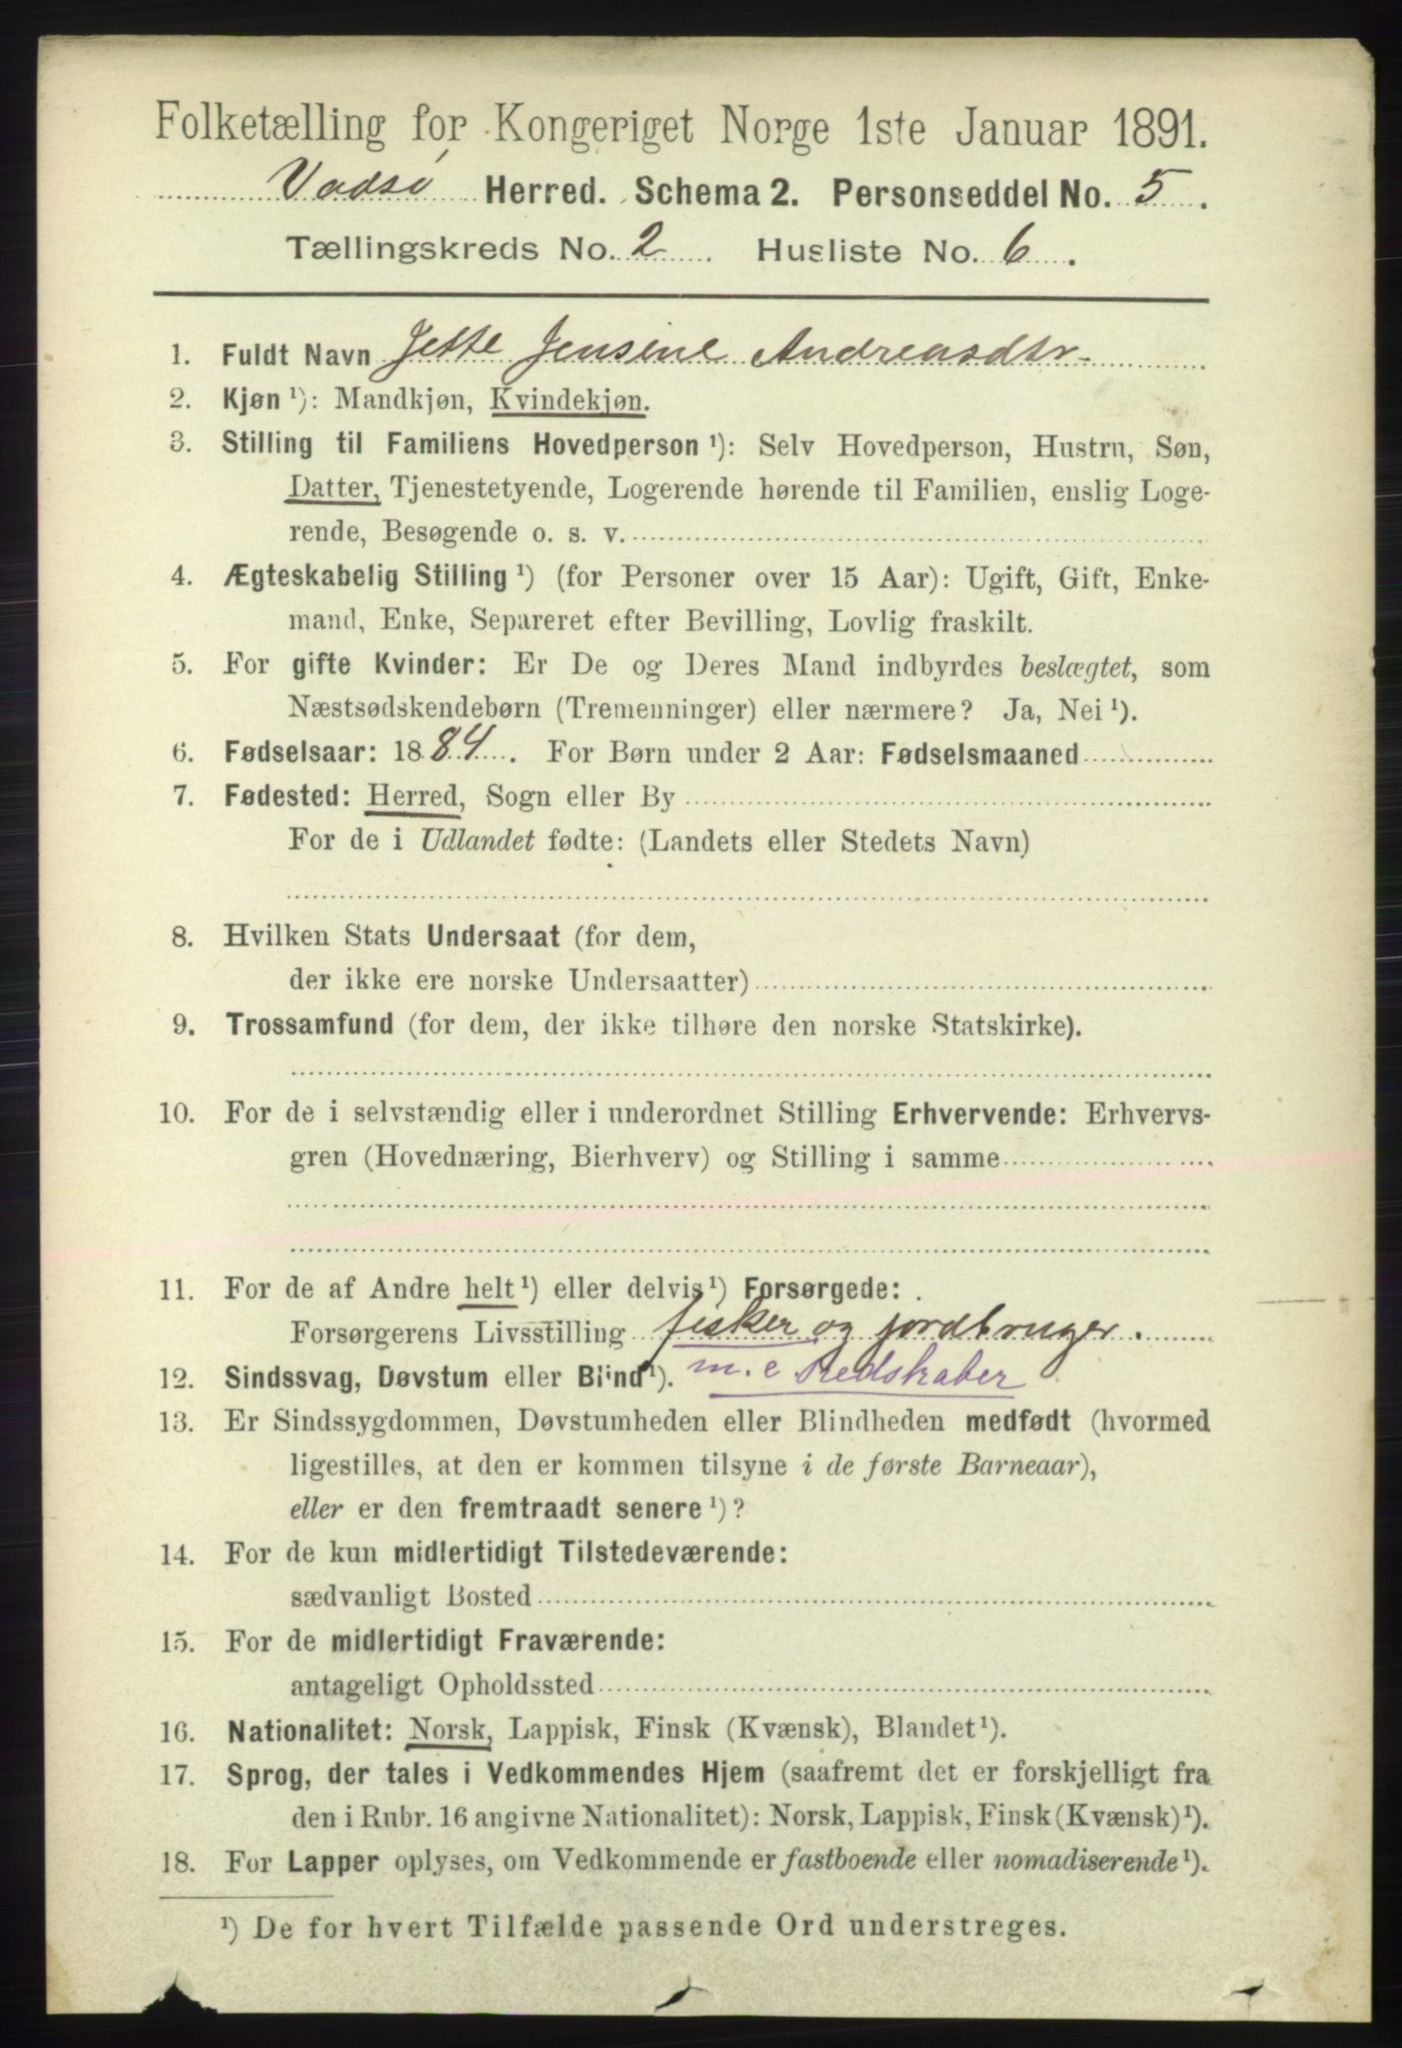 Folketælling for Kongeriget Norge 1ste Januar 1891.
Vadsø Herred. Schema 2. Personseddel No. 5.
Tællingskreds No. 2. Husliste No. 6.
1. Fuldt Navn Jette Jensine Andreasdtr.
2. Kjøn ¹): Mandkjøn, Kvindekjøn.
3. Stilling til Familiens Hovedperson ¹): Selv Hovedperson, Hustru, Søn,
Datter, Tjenestetyende, Logerende hørende til Familien, enslig Loge-
rende, Besøgende o. s. v.
4. Ægteskabelig Stilling ¹) (for Personer over 15 Aar): Ugift, Gift, Enke-
mand, Enke, Separeret efter Bevilling, Lovlig fraskilt.
5. For gifte Kvinder: Er De og Deres Mand indbyrdes beslægtet, som
Næstsødskendebørn (Tremenninger) eller nærmere? Ja, Nei ¹).
6. Fødselsaar: 1884. For Børn under 2 Aar: Fødselsmaaned
7. Fødested: Herred, Sogn eller By
For de i Udlandet fødte: (Landets eller Stedets Navn)
8. Hvilken Stats Undersaat (for dem,
der ikke ere norske Undersaatter)
9. Trossamfund (for dem, der ikke tilhøre den norske Statskirke).
10. For de i selvstændig eller i underordnet Stilling Erhvervende: Erhvervs-
gren (Hovednæring, Bierhverv) og Stilling i samme
11. For de af Andre helt ¹) eller delvis ¹) Forsørgede:
Forsørgerens Livsstilling fisker og jordbruger.
12. Sindssvag, Døvstum eller Blind ¹). m. e Redskaber
13. Er Sindssygdommen, Døvstumheden eller Blindheden medfødt (hvormed
ligestilles, at den er kommen tilsyne i de første Barneaar),
eller er den fremtraadt senere ¹)?
14. For de kun midlertidigt Tilstedeværende:
sædvanligt Bosted
15. For de midlertidigt Fraværende:
antageligt Opholdssted
16. Nationalitet: Norsk, Lappisk, Finsk (Kvænsk), Blandet ¹).
17. Sprog, der tales i Vedkommendes Hjem (saafremt det er forskjelligt fra
den i Rubr. 16 angivne Nationalitet): Norsk, Lappisk, Finsk (Kvænsk) ¹).
18. For Lapper oplyses, om Vedkommende er fastboende eller nomadiserende ¹).
¹) De for hvert Tilfælde passende Ord understreges.